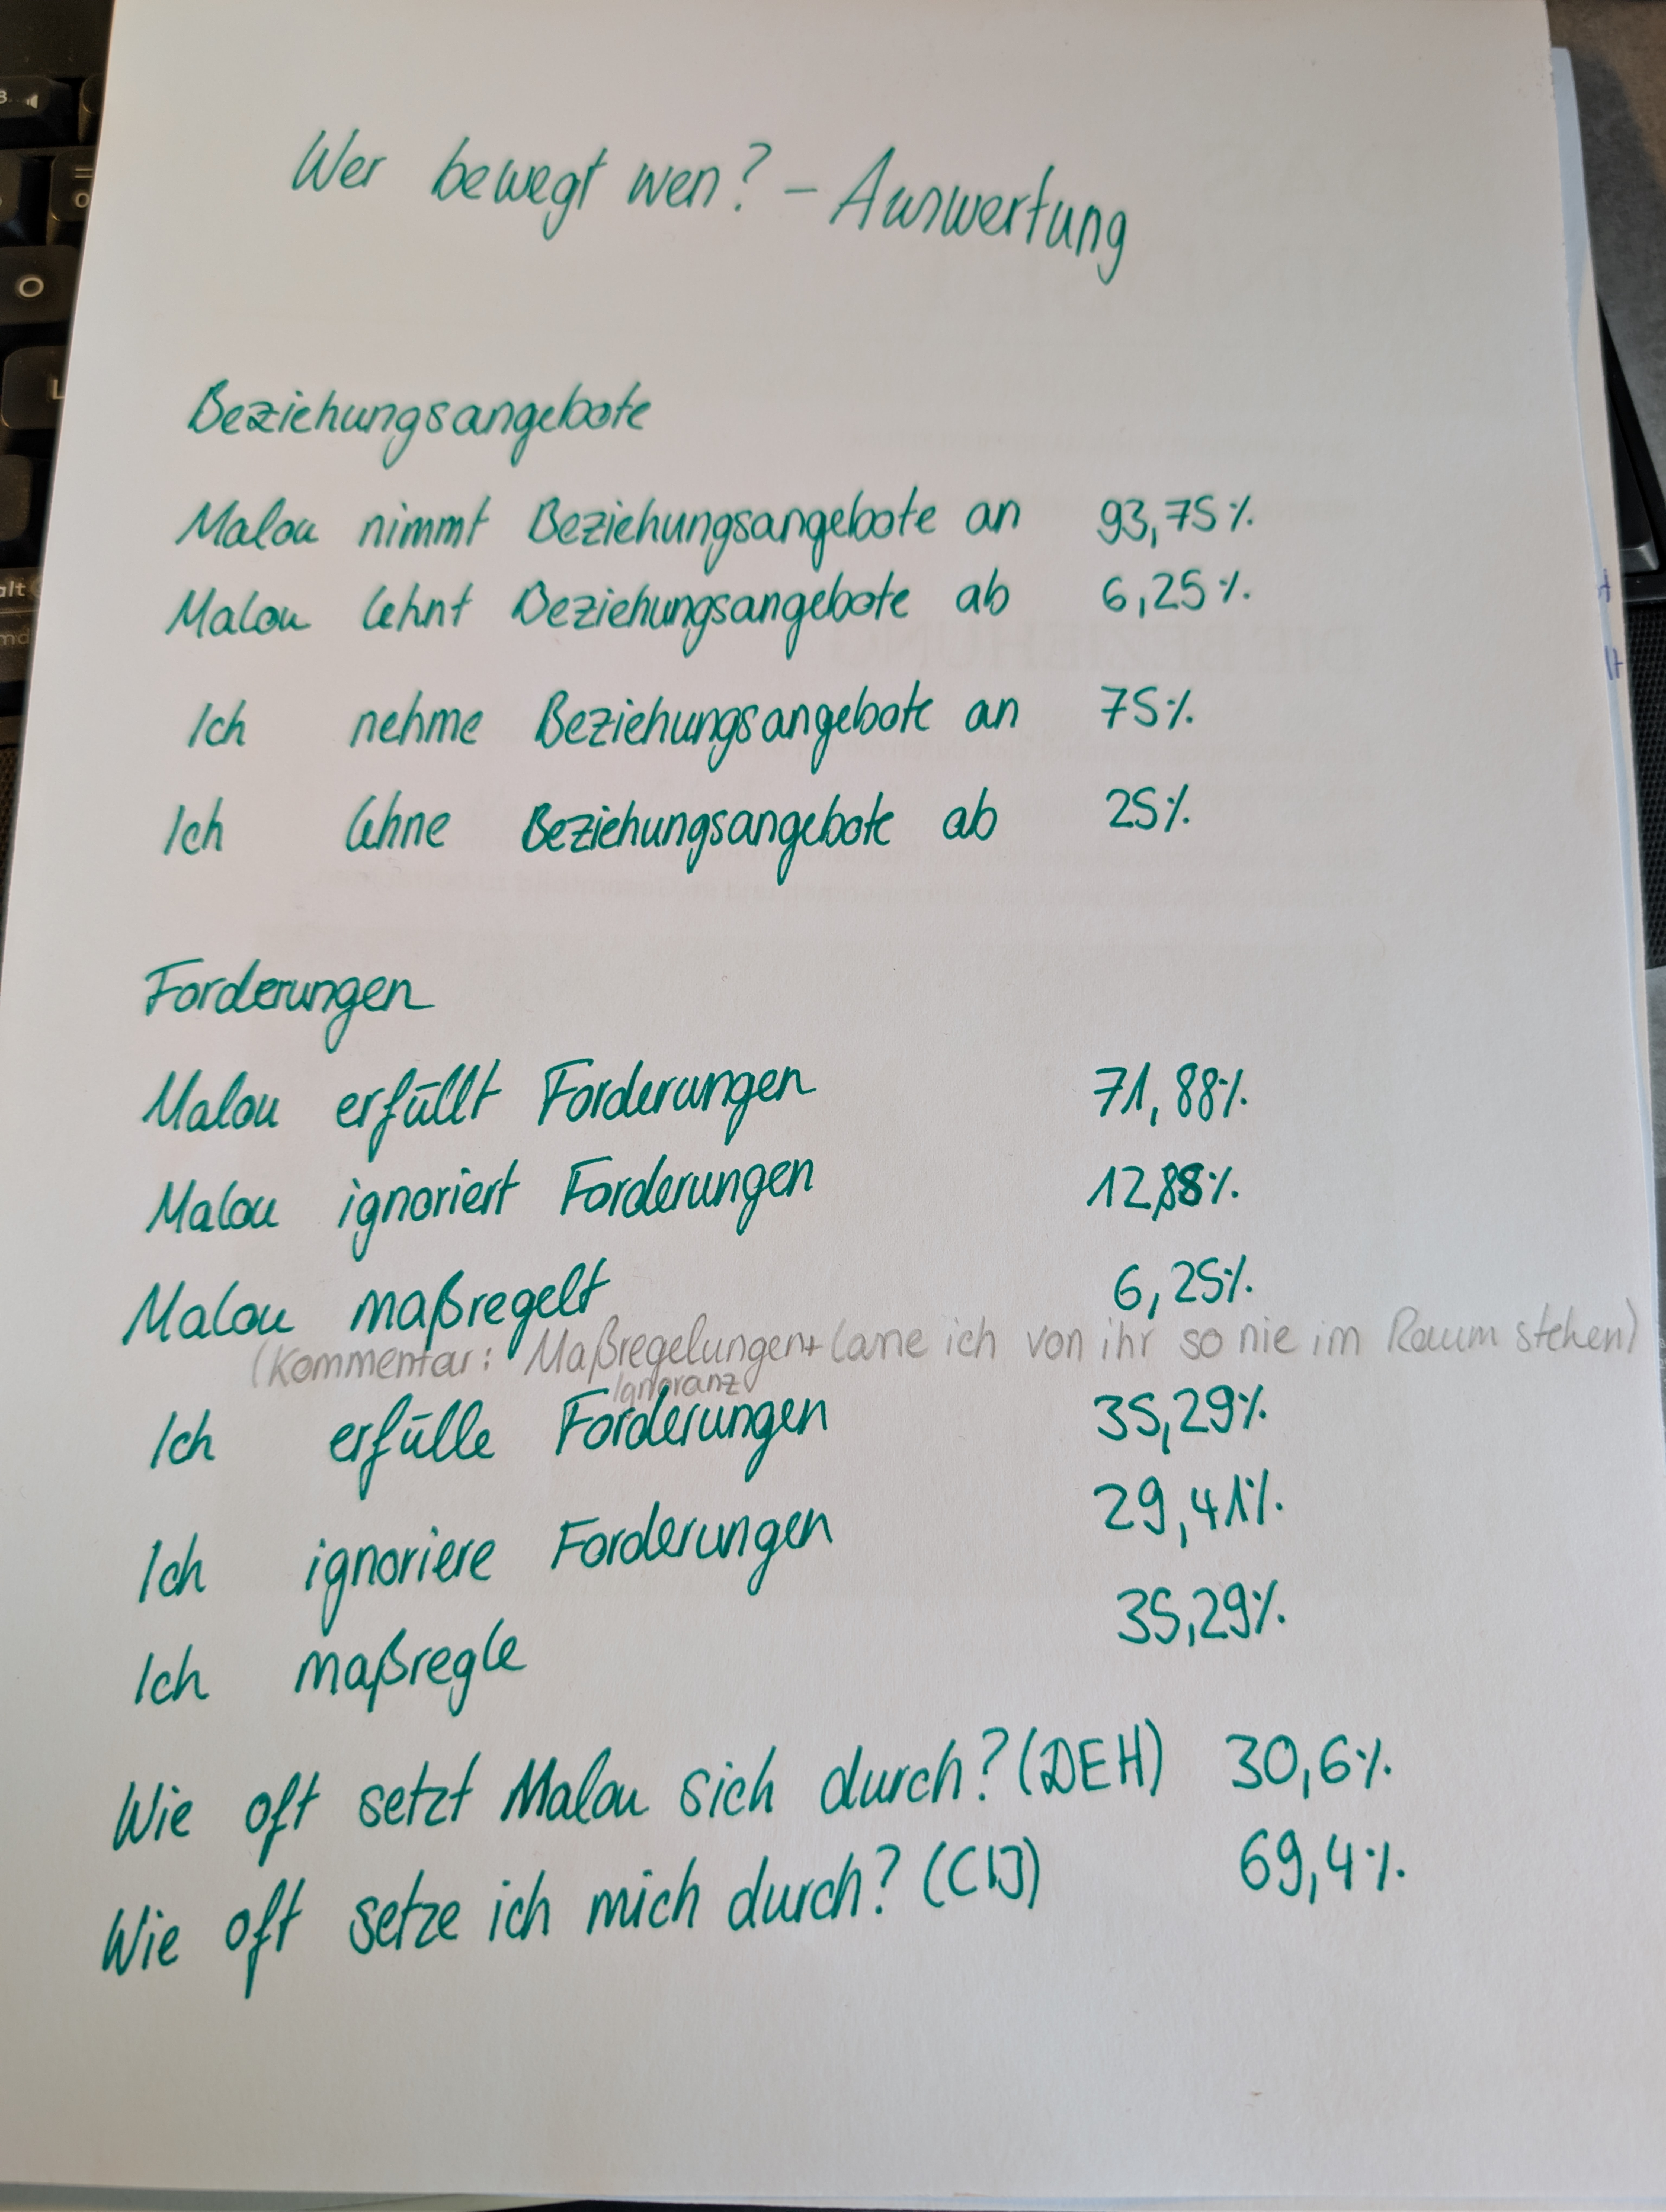 Wer bewegt wen? – Auswertung
Beziehungsangebote
Malou nimmt Beziehungsangebote an 93,75%
Malou lehnt Beziehungsangebote ab 6,25%
Ich nehme Beziehungsangebote an 75%
Ich lehne Beziehungsangebote ab 25%
Forderungen
Malou erfüllt Forderungen 71,88%
Malou ignoriert Forderungen 12,88%
Malou maßregelt 6,25%
(Kommentar: Maßregelungen + lasse ich von ihr so nie im Raum stehen)
Ignoranz
Ich erfülle Forderungen 35,29%
Ich ignoriere Forderungen 29,41%
Ich maßregle 35,29%
Wie oft setzt Malou sich durch? (DEH) 30,6%
Wie oft setze ich mich durch? (CIJ) 69,4%